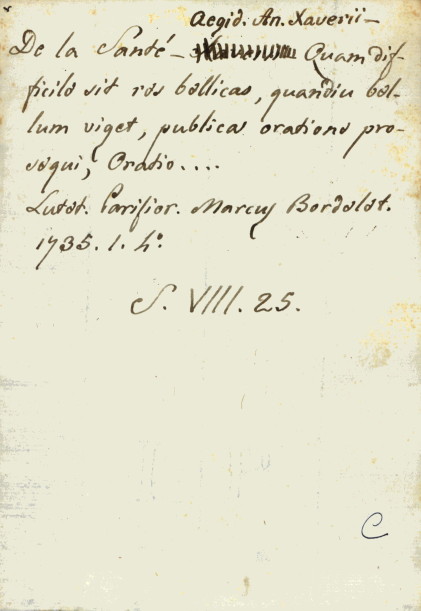 Aegid. An. Xaverii –
De la Santé – Quam dif-
ficile sit res bellicas, quandiu bel-
lum viget, publica oratione pro-
sequi, Oratio....
Lutet. Parisior. Marcus Bordelet.
1735. 1. 4º.
S. VIII. 25.
C